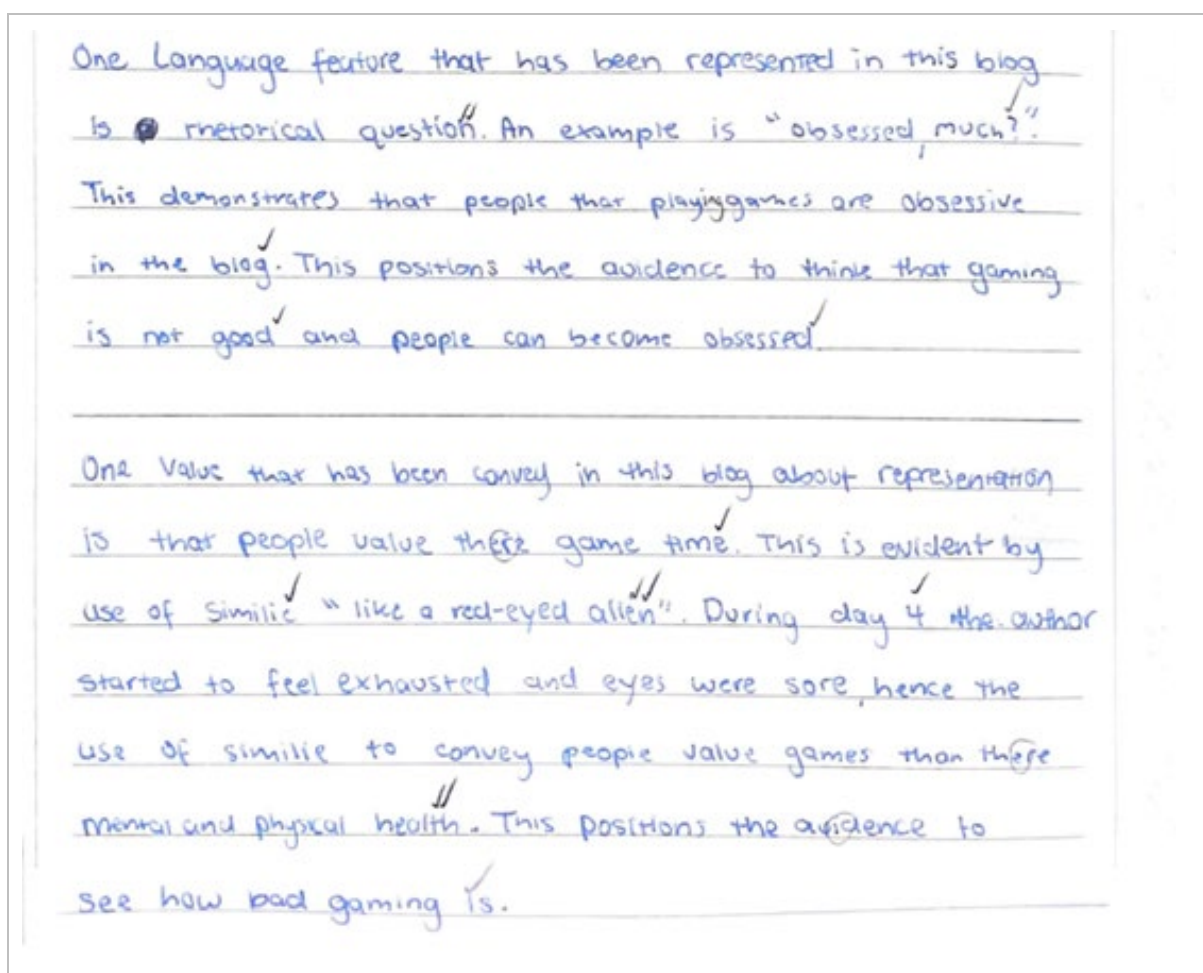 One Language feature that has been represented in this blog
is rhetorical question. An example is "obsessed, much?".
This demonstrates that people that playing games are obsessive
in the blog. This positions the auidence to think that gaming
is not good and people can become obsessed.
One Value that has been convey in this blog about representation
is that people value there game time. This is evident by
use of Similie "like a red-eyed alien". During day 4 the author
started to feel exhausted and eyes were sore, hence the
use of similie to convey people value games than there
mental and physical health. This positions the auidence to
see how bad gaming is.